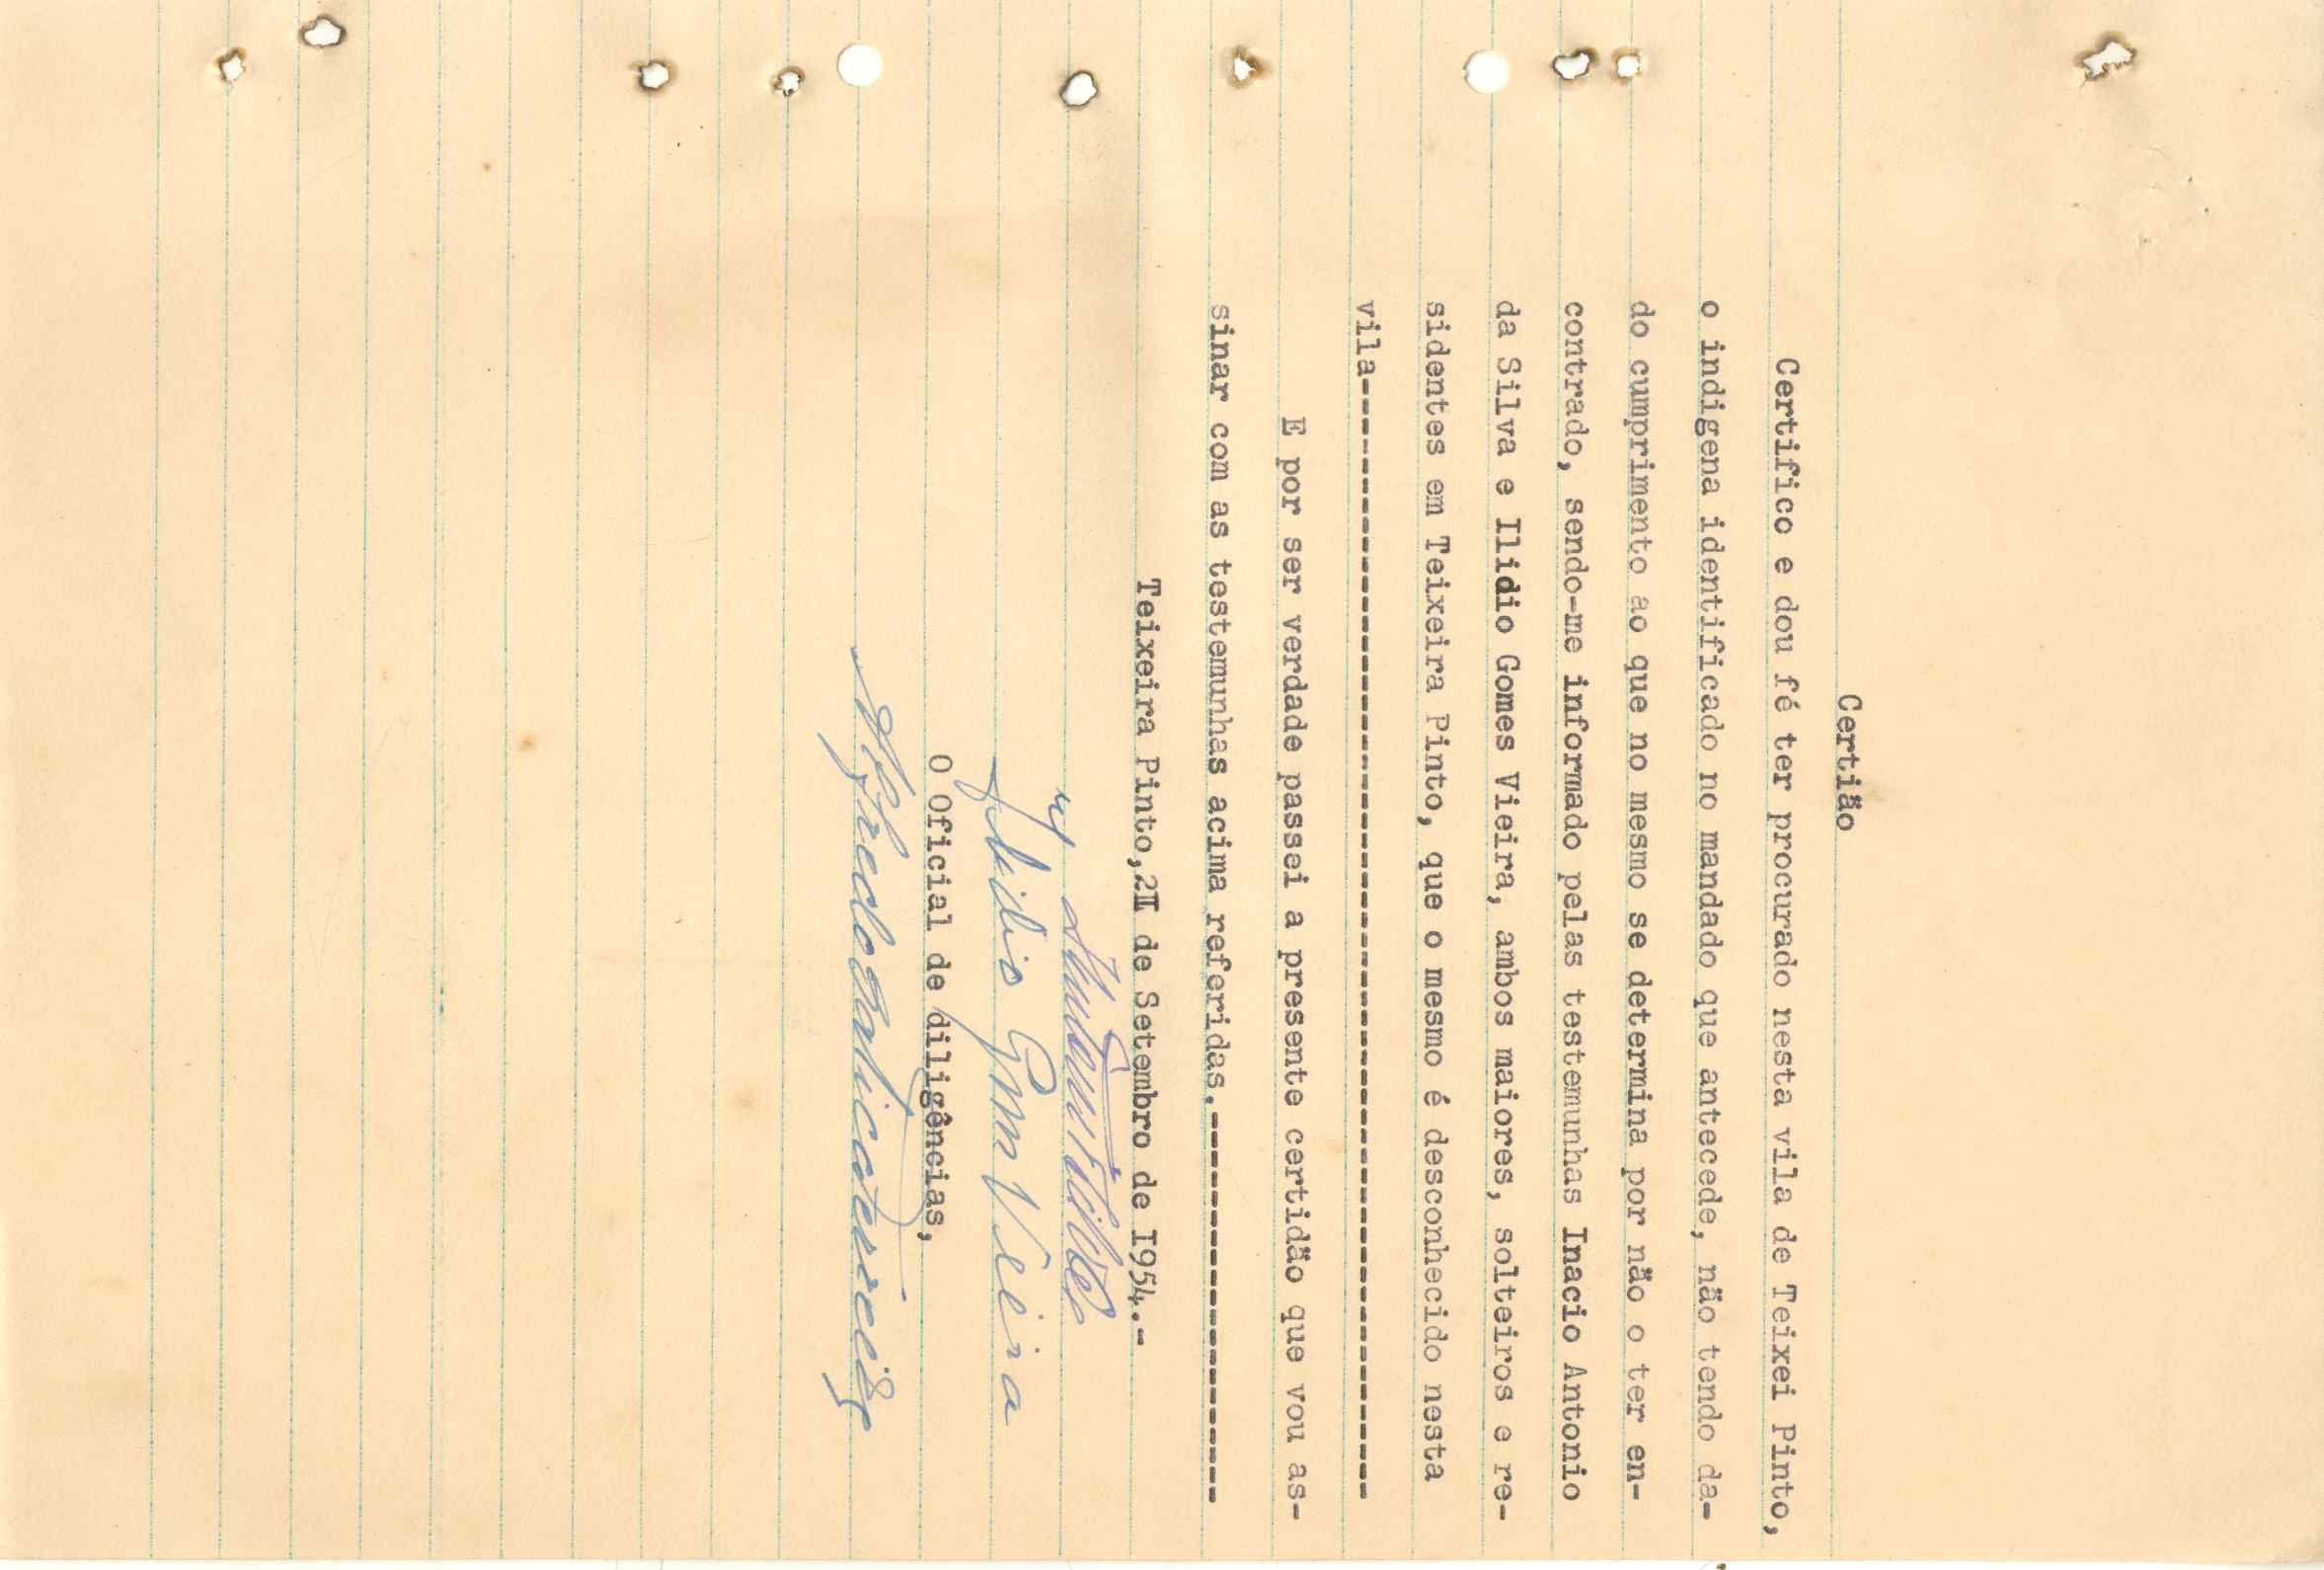 Certião
Certifico e dou fé ter procurado nesta vila de Teixei Pinto,
o indigena identificado no mandado que antecede, não tendo da-
do cumprimento ao que no mesmo se determina por não o ter en-
contrado, sendo-me informado pelas testemunhas Inacio Antonio
da Silva e Ilidio Gomes Vieira, ambos maiores, solteiros e re-
sidentes em Teixeira Pinto, que o mesmo é desconhecido nesta
vila------------------------------------------------------------
E por ser verdade passei a presente certidão que vou as-
sinar com as testemunhas acima referidas.----------------------
Teixeira Pinto,2II de Setembro de I954.-
Ilidio Gomes Vieira
O Oficial de diligências,